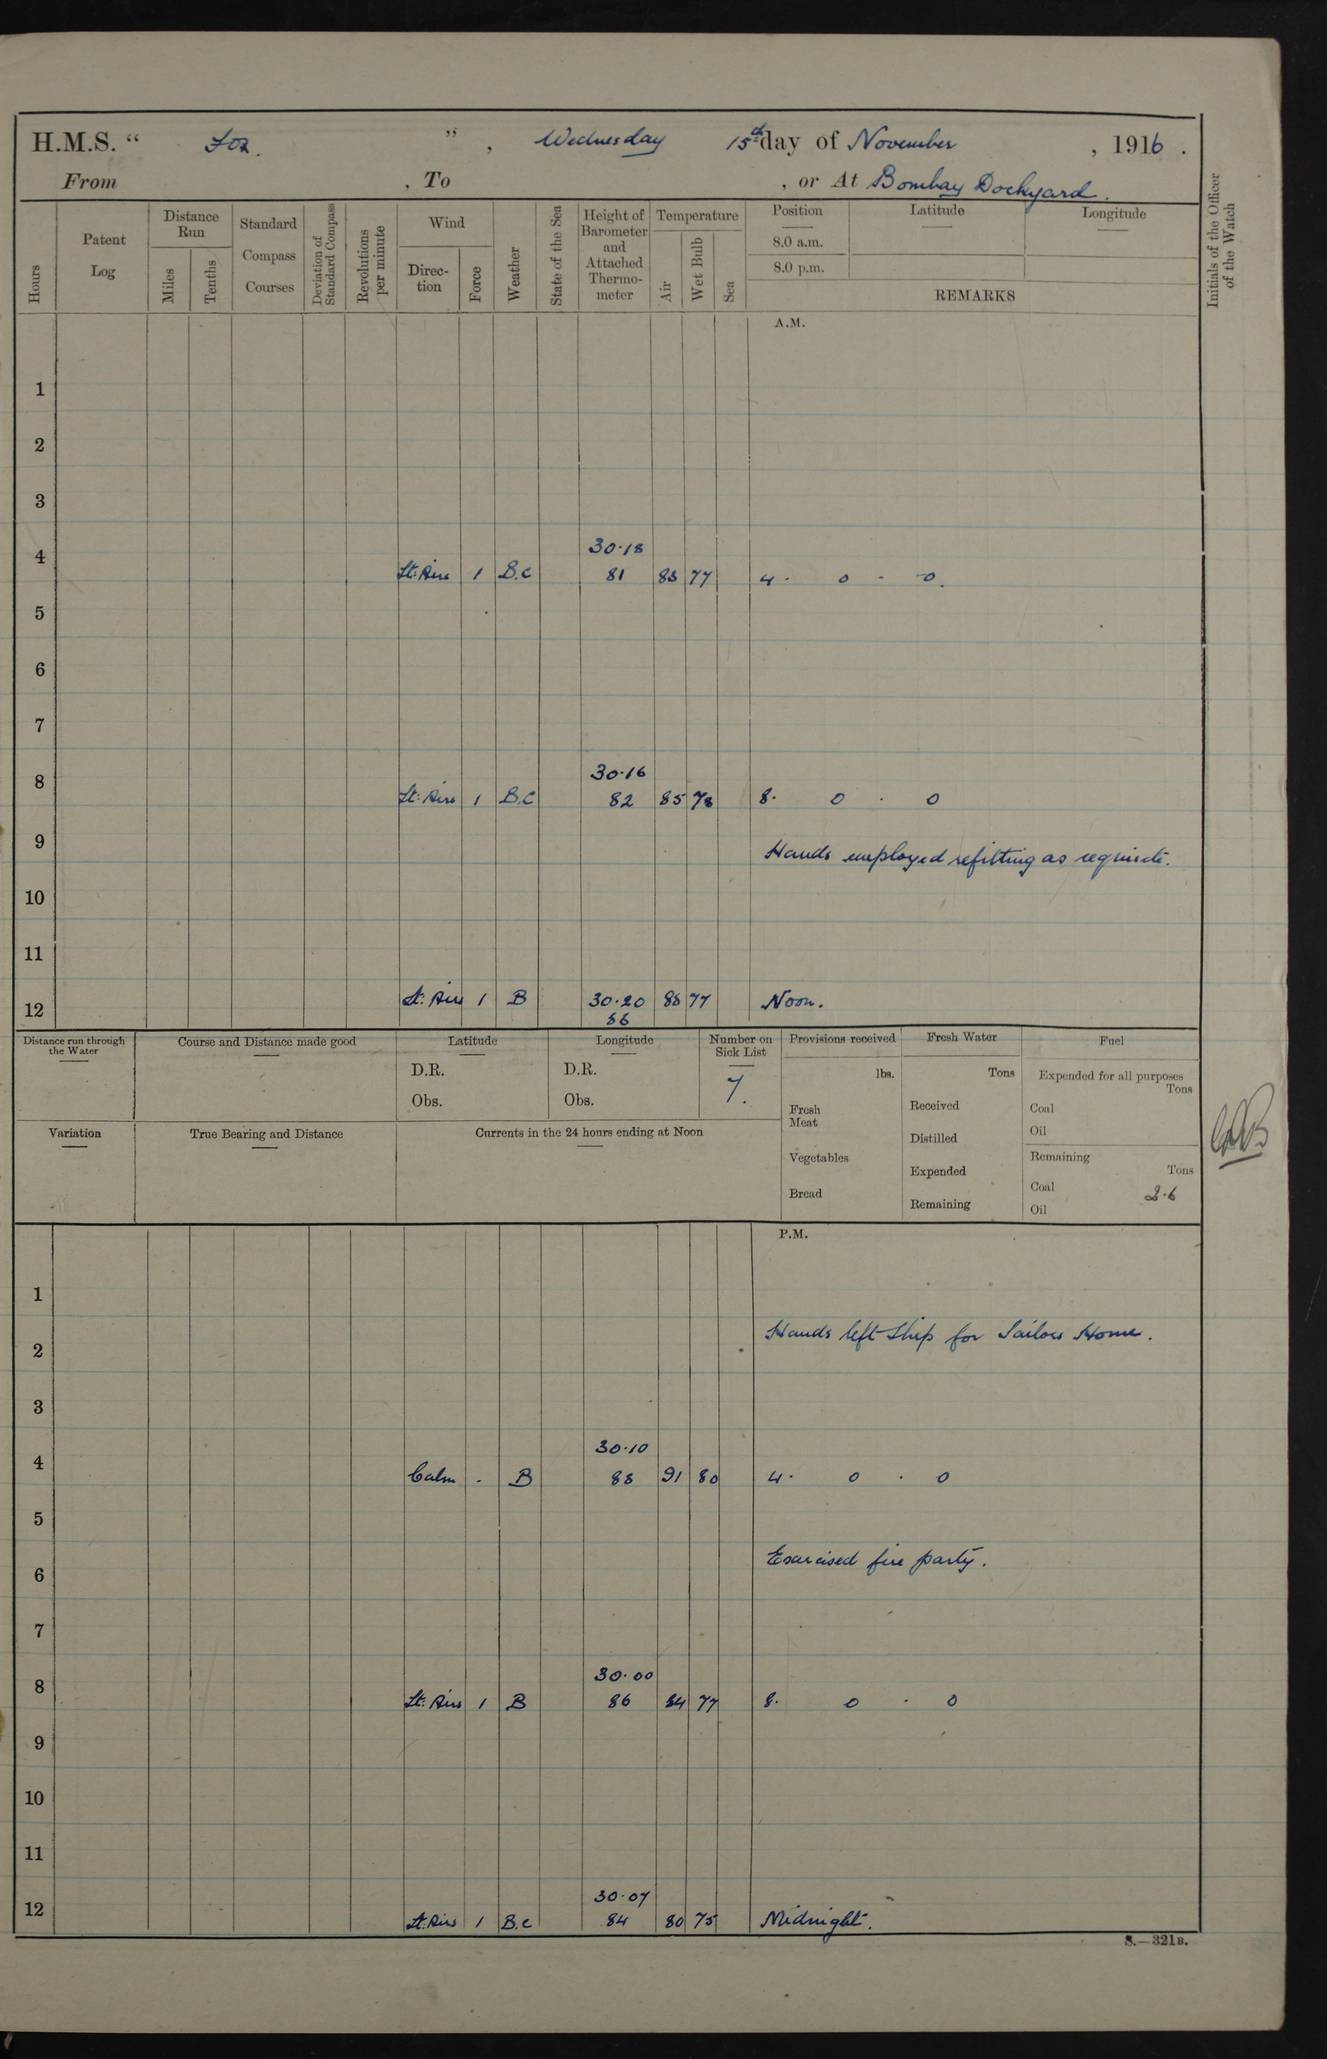 H.M.S. “ Fox. ” , Wednesday 15th day of November , 1916 .
From , To , or At Bombay Dockyard.
Hours
Patent Log
Distance Run
Miles
Tenths
Standard Compass Courses
Deviation of Standard Compass
Revolutions per minute
Wind
Direc-tion
Force
Weather
State of the Sea
Height of Barometer and Attached Thermo-meter
Temperature
Air
Wet Bulb
Sea
Position
8.0 a.m.
8.0 p.m.
Latitude
Longitude
REMARKS
Initials of the Officer of the Watch
A.M.
1
2
3
30.18
4 Lt: Airs 1 B.C 81 83 77 4 . 0 . 0.
5
6
7
30.16
8 Lt: Airs 1 B.C 82 85 78 8. 0 . 0
9 Hands employed refitting as requisite.
10
11
12 Lt: Airs 1 B 30.20 77 Noon.
Distance run through the Water
Course and Distance made good
Latitude
D.R.
Obs.
Longitude
D.R.
Obs.
Number on Sick List
7.
Provisions received
lbs.
Fresh Meat
Vegetables
Bread
Fresh Water
Tons
Received
Distilled
Expended
Remaining
Fuel
Expended for all purposes
Tons
Coal
Oil
Remaining
Tons
Coal 26
Oil
Variation
True Bearing and Distance
Currents in the 24 hours ending at Noon
P.M.
1
2 Hands left Ship for Sailors Home.
3
30.10
4 Calm . B 88 91 80 4 . 0 . 0
5
6 Exercised fire party.
7
30.00
8 Lt: Airs 1 B 86 84 77 8. 0 . 0
9
10
11
30.07
12 Lt: Airs 1 B.C 84 80 75 Midnight.
S.—321B.